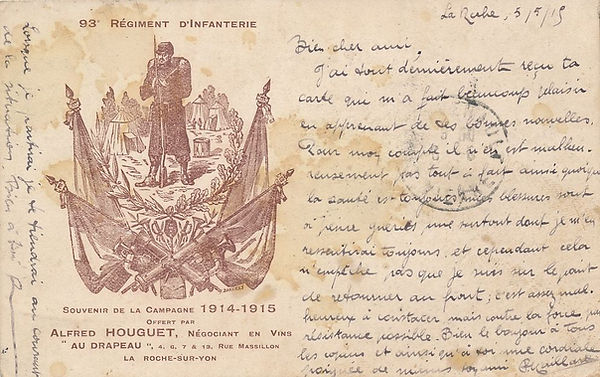 93e RÉGIMENT D'INFANTERIE
SOUVENIR DE LA CAMPAGNE 1914-1915
OFFERT PAR
ALFRED HOUGUET, NÉGOCIANT EN VINS
"AU DRAPEAU", 4, 6, 7 & 13, RUE MASSILLON
LA ROCHE-SUR-YON
La Roche, 5/5/15
Bien cher ami.
J'ai tout dernièrement reçu ta
carte que m'a fait beaucoup plaisir
en apprenant de tes bonnes nouvelles.
Pour mon compte il n'en est malheu-
reusement pas tout à fait ainsi quoique
la santé est toujours mes blessures sont
à peine guéries une surtout dont je m'en
ressentirai toujours, et cependant cela
n'empêche pas que je suis sur le point
de retourner au front, c'est assez mal-
heureux à constater mais contre la force pas
résistance possible. Bien le bonjour à tous
les copains et ainsi qu'à toi une cordiale
poignée de mains ton ami
Lorsque je partirai je te tiendrai au courant
de la situation. Bien à toi